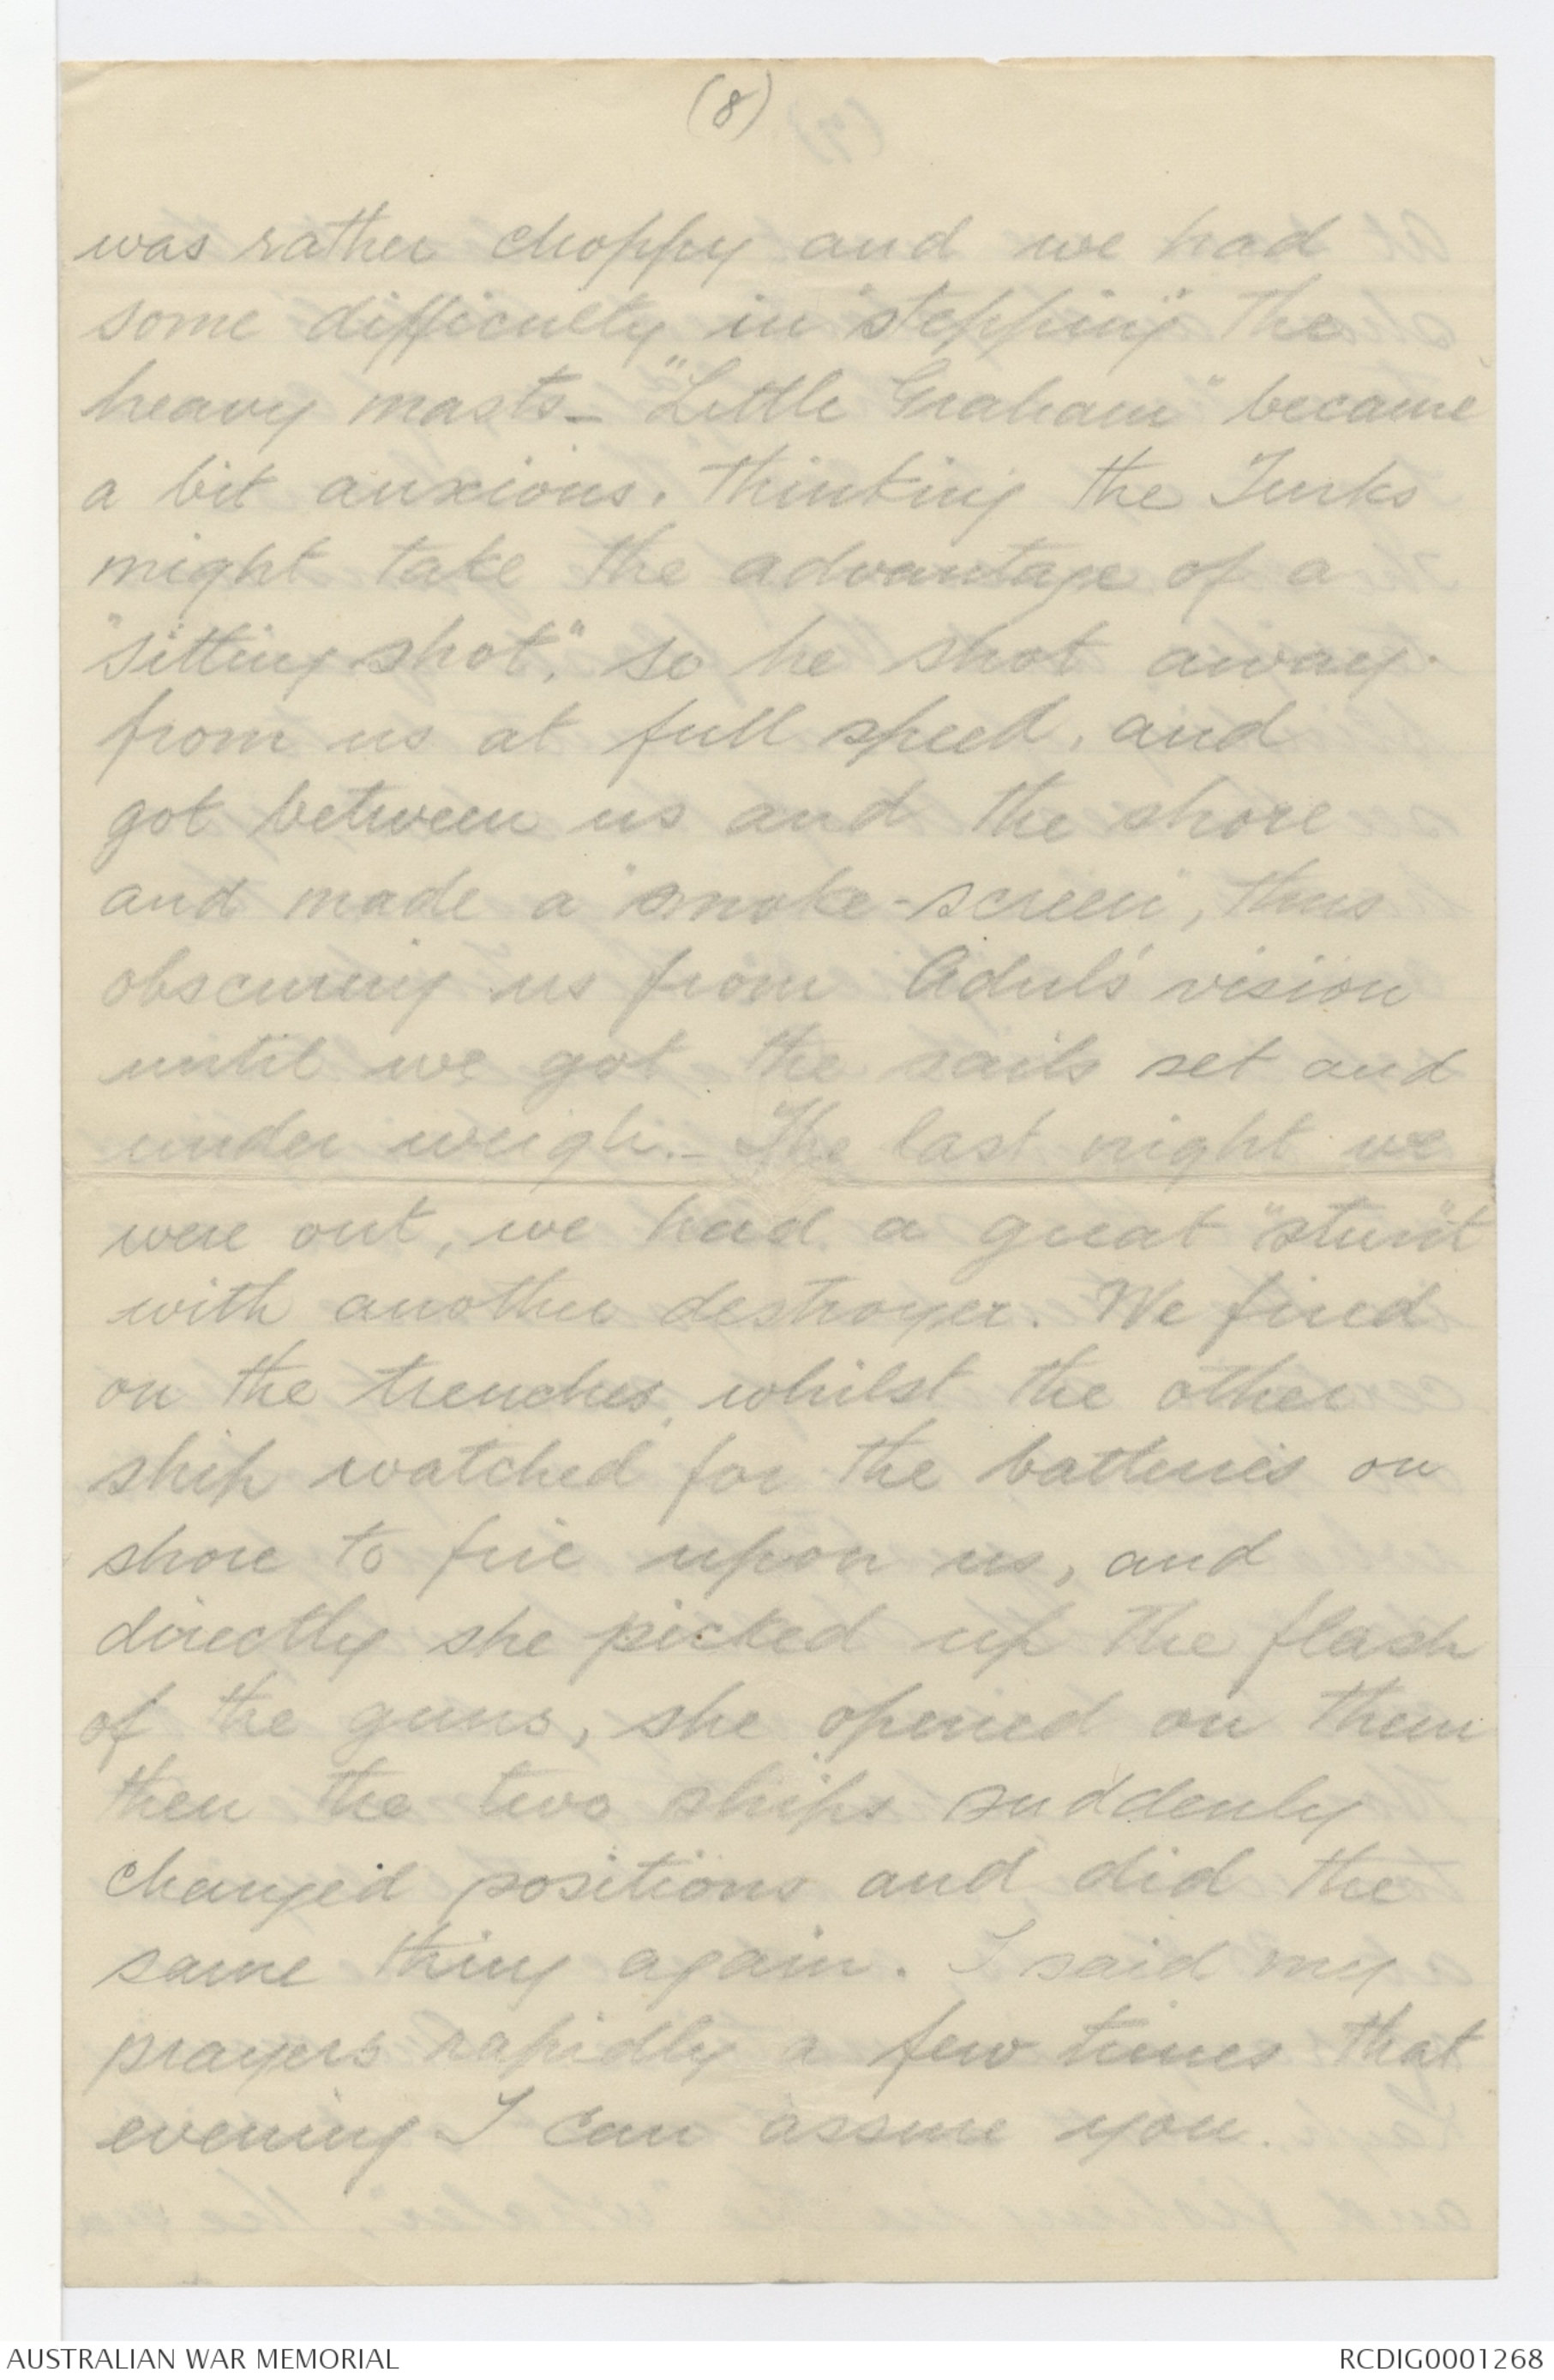 (8)
was rather choppy and we had
some difficulty in "stepping" the
heavy masts - "Little Graham" became
a bit anxious, thinking the Turks
might take the advantage of a
"sitting shot," so he shot away
from us at full speed, and
got between us and the shore
and made a "smoke-screen", thus
obscuring us from Adul's vision
until we got the sails set and
under weigh. - The last night we
were out, we had a great "stunt"
with another destroyer. We fired
on the trenches, whilst the other
ship watched for the batteries on
shore to fire upon us, and
directly she picked up the flash
of the guns, she opened on them
then the two ships suddenly
changed positions and did the
same thing again. I said my
prayers rapidly a few times that
evening I can assure you.
AUSTRALIAN WAR MEMORIAL
RCDIG0001268